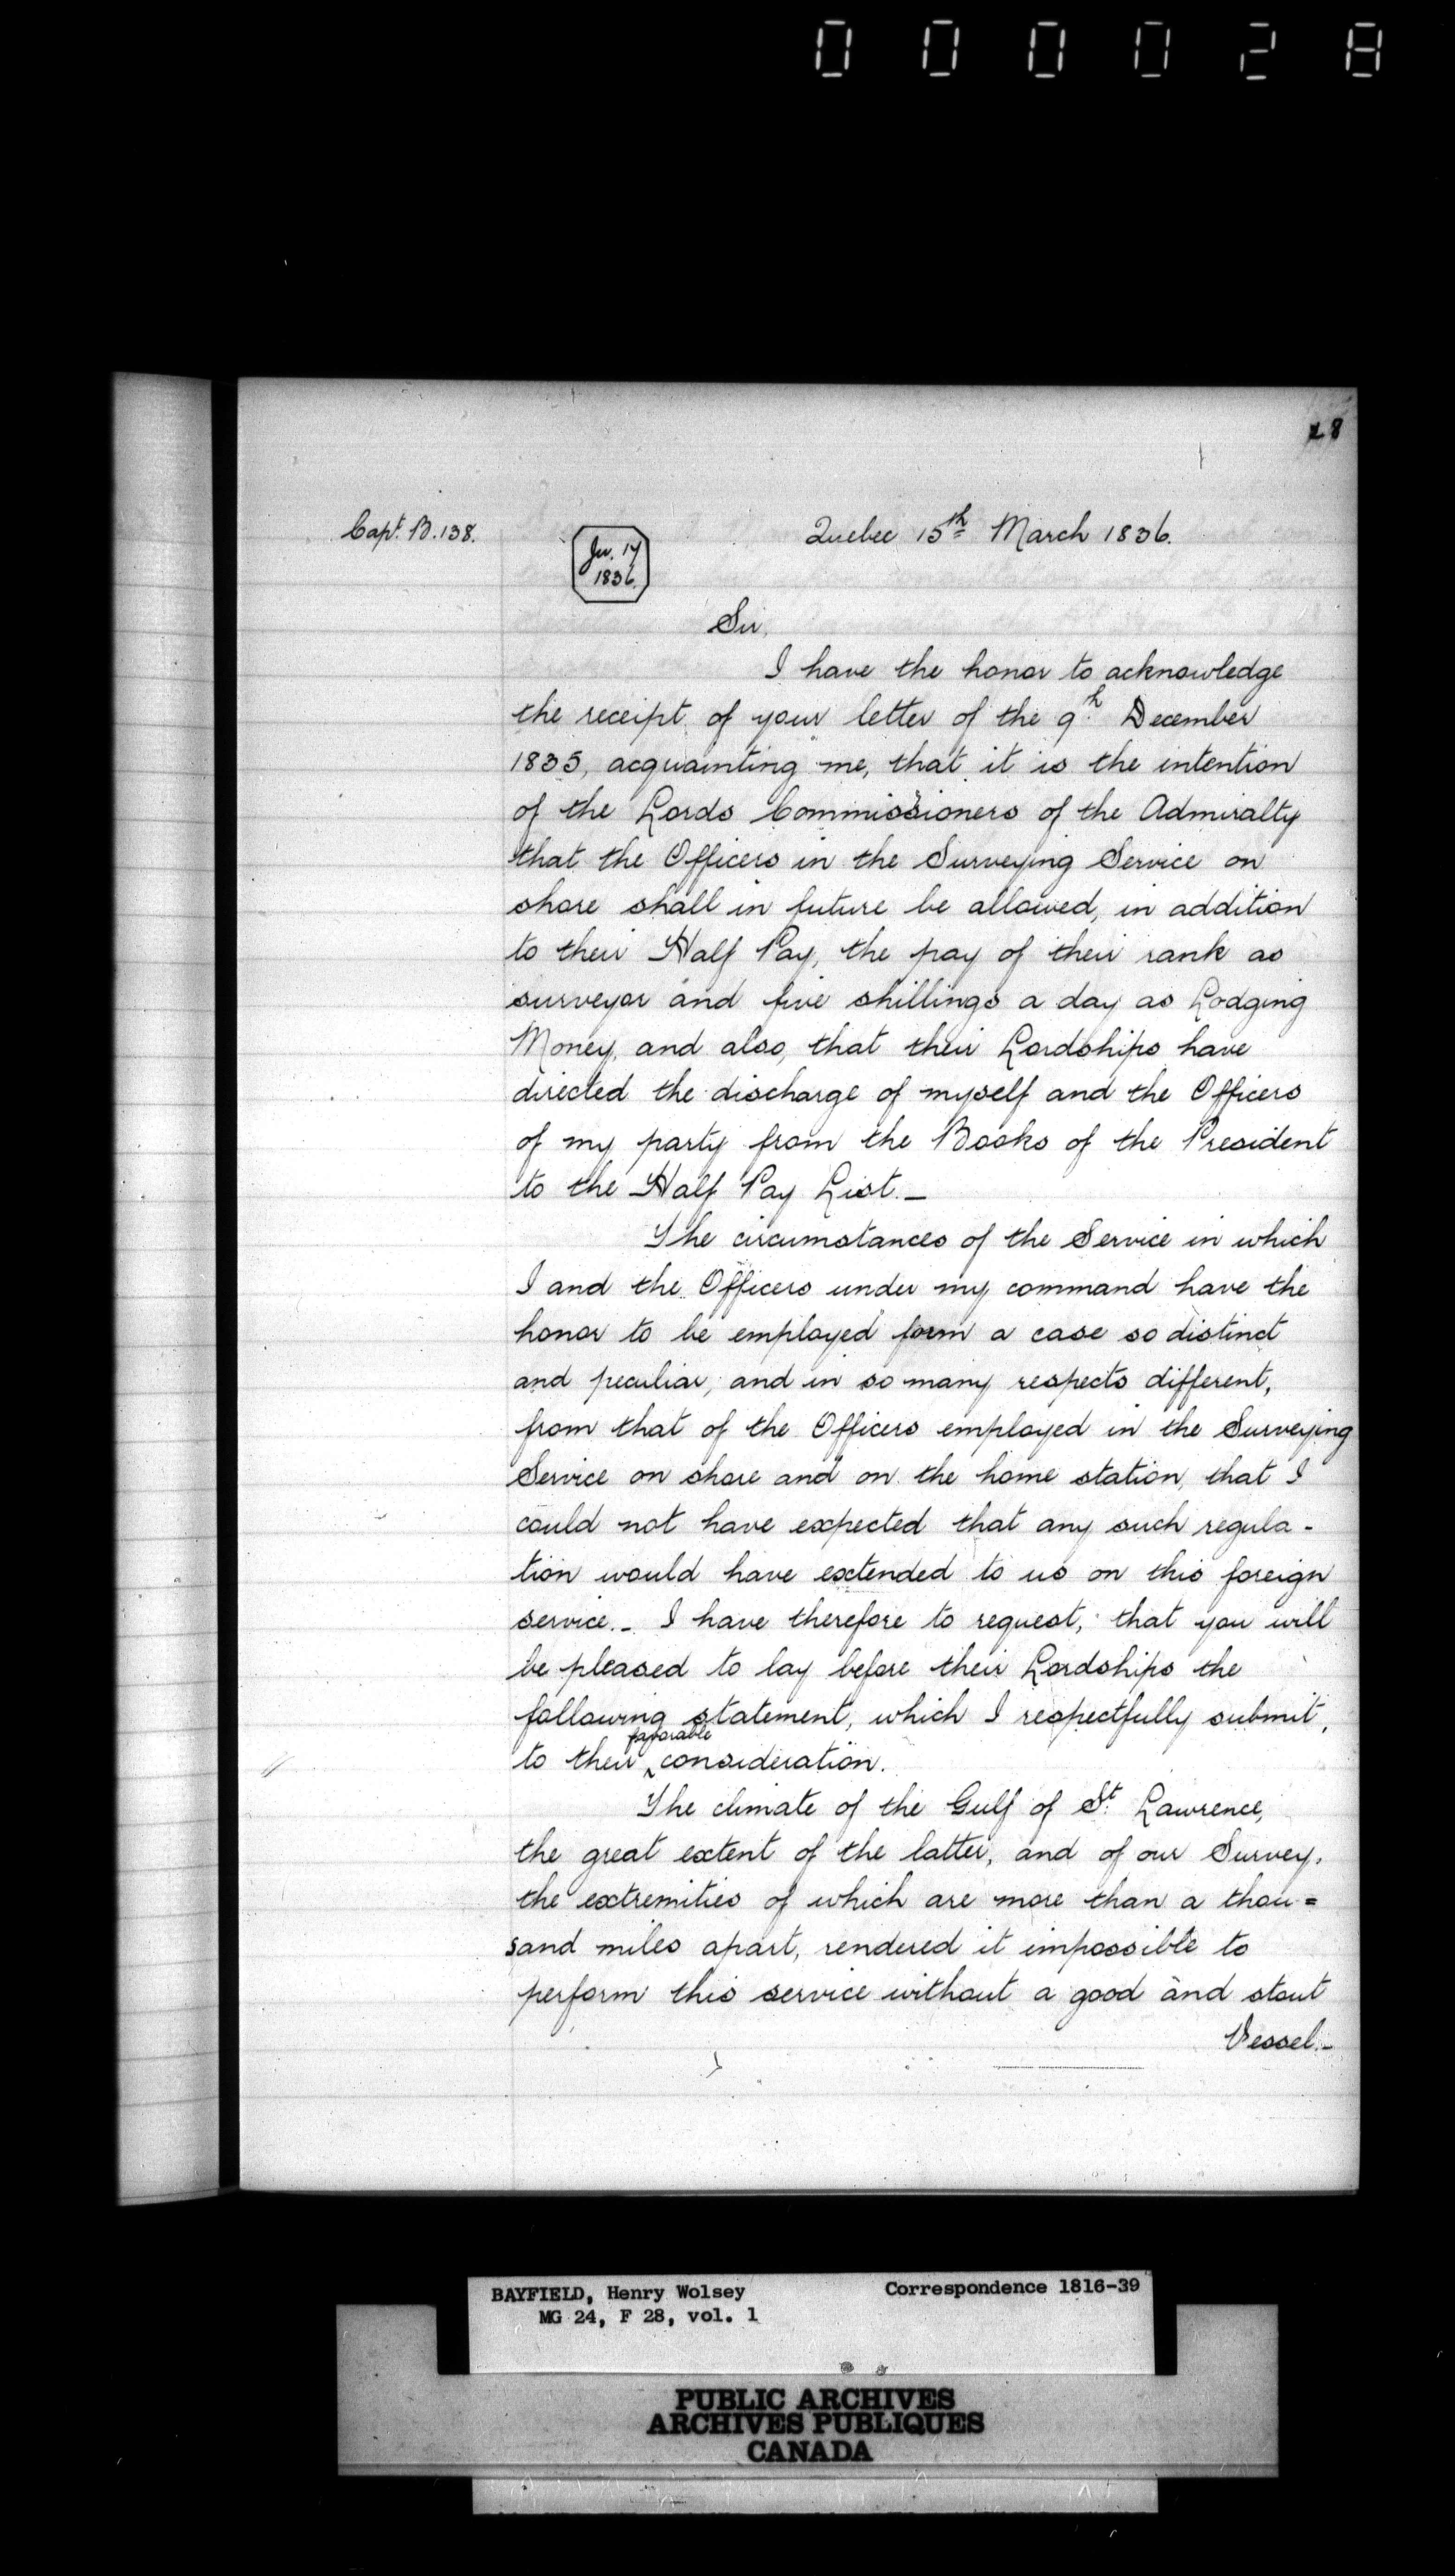 000028
28
Capt. B. 138.
Quebec 15th March 1836.
Ju. 17
1836
Sir,
I have the honor to acknowledge
the receipt of your letter of the 9th December
1835, acquainting me, that it is the intention
of the Lords Commissioners of the Admiralty
that the Officers in the Surveying Service on
shore shall in future be allowed, in addition
to their Half Pay, the pay of their rank as
surveyor and five shillings a day as Lodging
Money, and also, that their Lordships have
directed the discharge of myself and the Officers
of my party from the Books of the President
to the Half Pay List._
The circumstances of the Service in which
I and the Officers under my command have the
honor to be employed form a case so distinct
and peculiar, and in so many respects different,
from that of the Officers employed in the Surveying
Service on shore and on the home station, that I
could not have expected that any such regula-
tion would have extended to us on this foreign
service._ I have therefore to request, that you will
be pleased to lay before their Lordships the
following statement, which I respectfully submit,
to their favorable consideration.
The climate of the Gulf of St. Lawrence,
the great extent of the latter, and of our Survey,
the extremities of which are more than a thou=
sand miles apart, rendered it impossible to
perform this service without a good and stout
Vessel._
BAYFIELD, Henry Wolsey Correspondence 1816-39
MG 24, F 28, vol. 1
PUBLIC ARCHIVES
ARCHIVES PUBLIQUES
CANADA